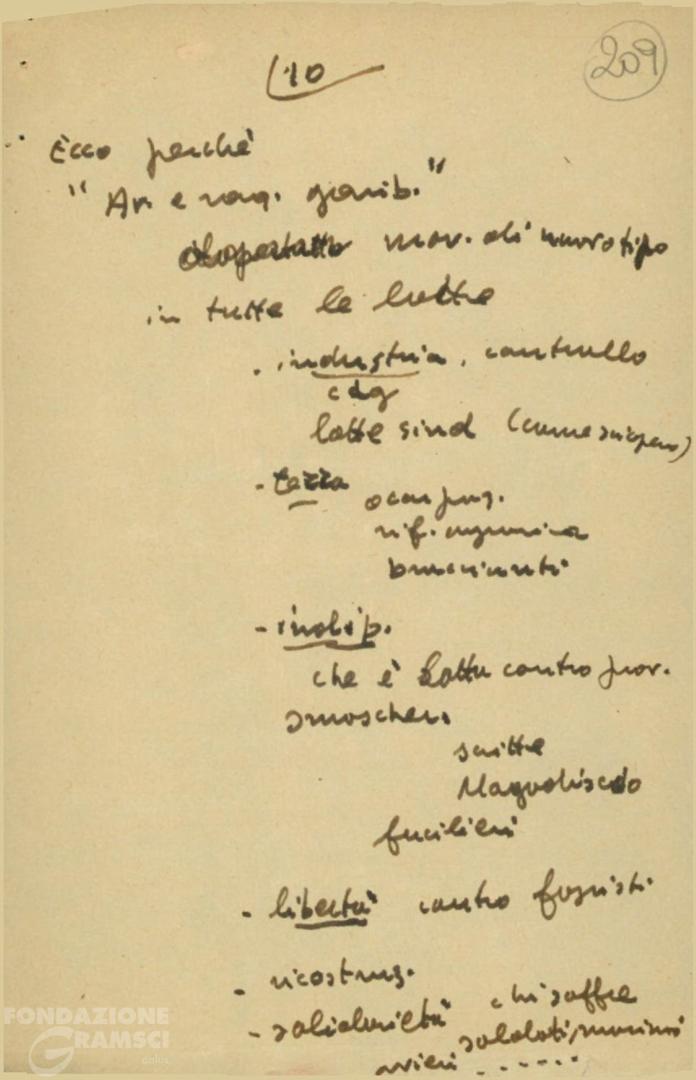 10
209
Ecco perché
" Av. e rag. garib. "
mov. di nuovo tipo
in tutte le lotte
. industria, controllo
cdg
lotte sind
- terra
occup.
rif. agraria
braccianti
- indip.
che è lotta contro
smascher.
scritte
fucilieri
- libertà contro fascisti
- ricostruz.
- solidarietà chi soffre
soldati, marinai
avieri ......
FONDAZIONE
GRAMSCI